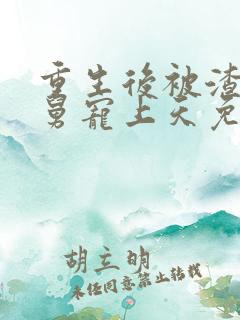 重生後被渣
舅寵上天免
胡立明
未经同意禁止转载